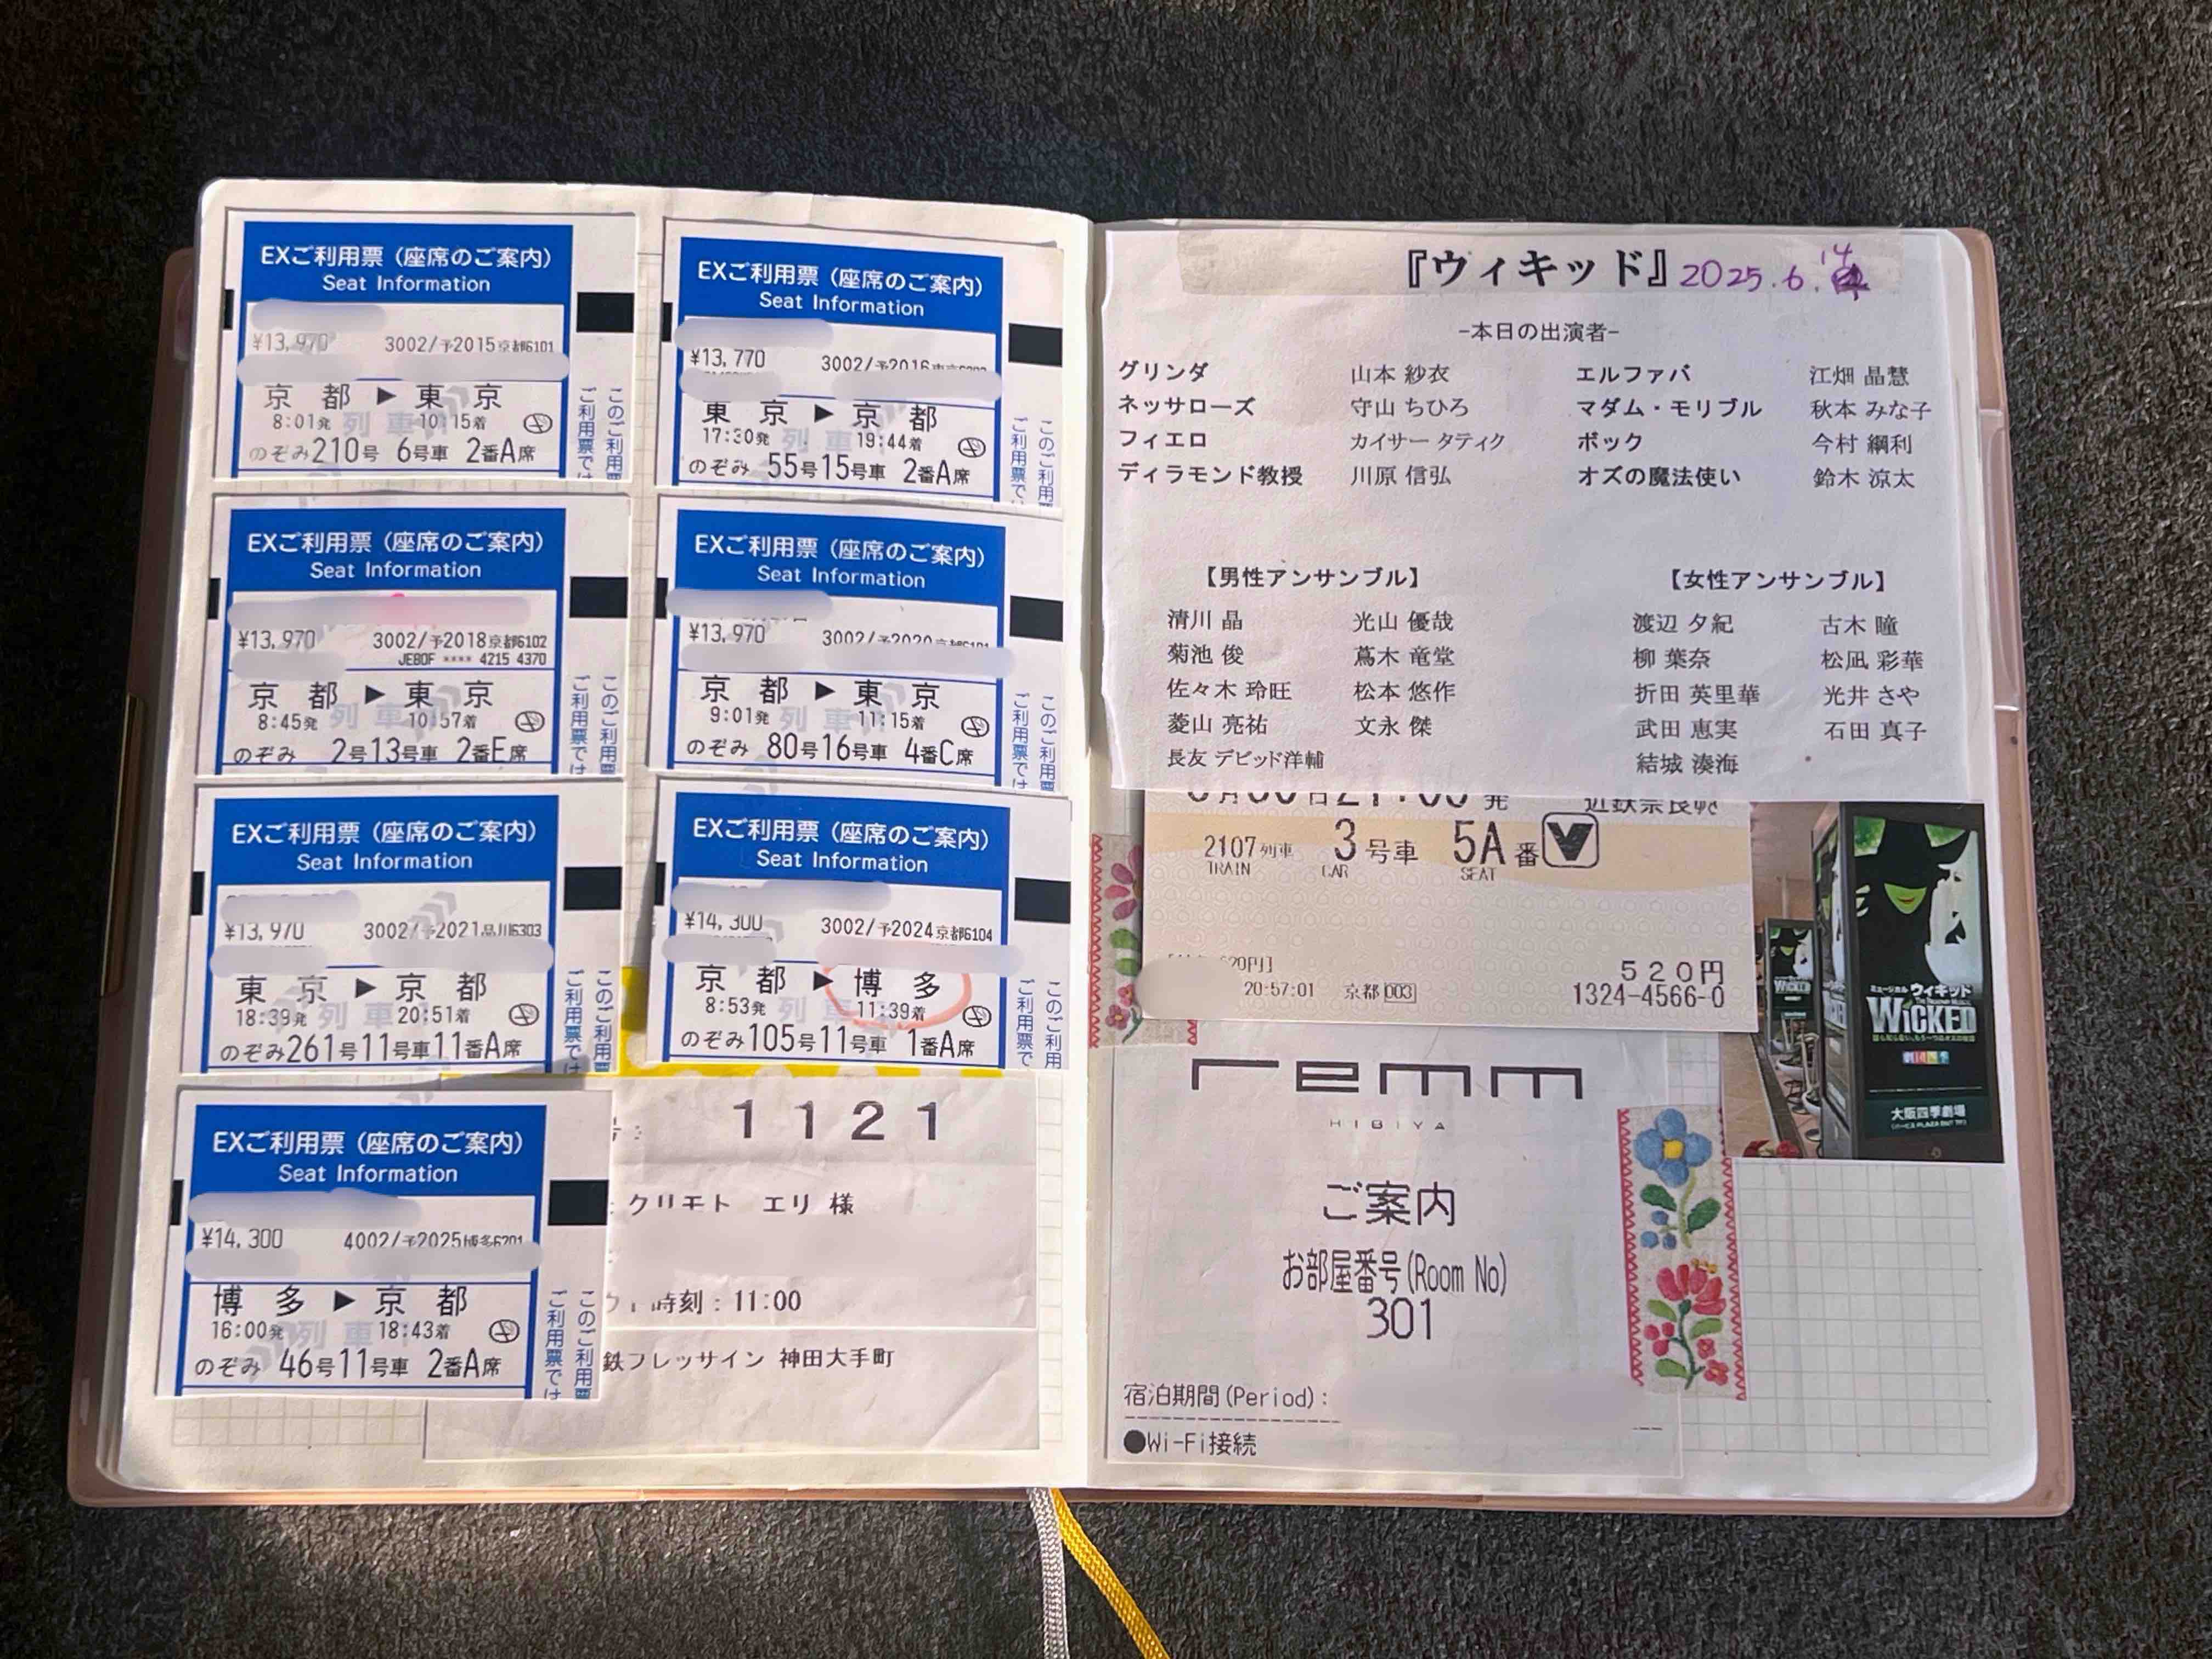 EXご利用票（座席のご案内）
Seat Information
¥13,970 3002/予2015京都6101
京都 ▶ 東京
8:01発 列車 10:15着
のぞみ210号 6号車 2番A席
このご利用票
ご利用票では
EXご利用票（座席のご案内）
Seat Information
¥13,970 3002/予2018京都6102
JE80F **** 4215 4370
京都 ▶ 東京
8:45発 列車 10:57着
のぞみ 2号13号車 2番E席
このご利用票
ご利用票では
EXご利用票（座席のご案内）
Seat Information
¥13,970 3002/予2021品川6303
東京 ▶ 京都
18:39発 列車 20:51着
のぞみ261号11号車11番A席
このご利用票
ご利用票では
EXご利用票（座席のご案内）
Seat Information
¥14,300 4002/予2025博多6201
博多 ▶ 京都
16:00発 列車 18:43着
のぞみ 46号11号車 2番A席
このご利用票
ご利用票では
EXご利用票（座席のご案内）
Seat Information
¥13,770 3002/予2016
東京 ▶ 京都
17:30発 列車 19:44着
のぞみ 55号15号車 2番A席
このご利用票
ご利用票では
EXご利用票（座席のご案内）
Seat Information
¥13,970 3002/予2020
京都 ▶ 東京
9:01発 列車 11:15着
のぞみ 80号16号車 4番C席
このご利用票
ご利用票では
EXご利用票（座席のご案内）
Seat Information
¥14,300 3002/予2024京都6104
京都 ▶ 博多
8:53発 列車 11:39着
のぞみ105号11号車 1番A席
このご利用
ご利用票で
1121
クリモト エリ 様
時刻：11:00
鉄フレッサイン 神田大手町
『ウィキッド』2025.6.14
-本日の出演者-
グリンダ 山本 紗衣 エルファバ 江畑 晶慧
ネッサローズ 守山 ちひろ マダム・モリブル 秋本 みな子
フィエロ カイサー タティク ボック 今村 綱利
ディラモンド教授 川原 信弘 オズの魔法使い 鈴木 涼太
【男性アンサンブル】 【女性アンサンブル】
清川 晶 光山 優哉 渡辺 夕紀 古木 瞳
菊池 俊 蔦木 竜堂 柳 葉奈 松凪 彩華
佐々木 玲旺 松本 悠作 折田 英里華 光井 さや
菱山 亮祐 文永 傑 武田 恵実 石田 真子
長友 デビッド洋輔 結城 湊海
2107列車 3号車 5A番
TRAIN CAR SEAT
520円
20:57:01 京都003 1324-4566-0
WICKED
ミュージカル ウィキッド
WICKED
大阪四季劇場
remm
HIBIYA
ご案内
お部屋番号(Room No)
301
宿泊期間(Period)：
●Wi-Fi接続